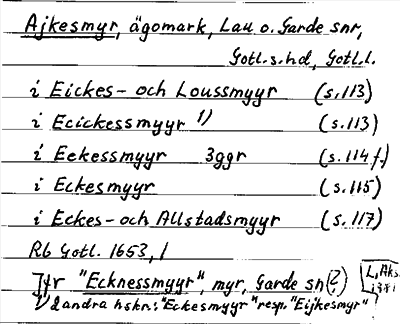 Ajkesmyr, ägomark, Lau o. Garde snr,
Gotl. s. hd, Gotl. l.
i Eickes- och Loussmyyr (s. 113)
i Ecickessmyyr 1) (s. 113)
i Eekessmyyr 3ggr (s. 114 f.)
i Eckesmyyr (s. 115)
i Eckes- och Allstadsmyyr (s. 117)
Rb Gotl. 1653, 1
Jfr "Ecknessmyyr", myr, Garde sn (?)
L, Aks.
1) 2 andra hskr.: "Eckesmyyr" resp. "Eijkesmyr"